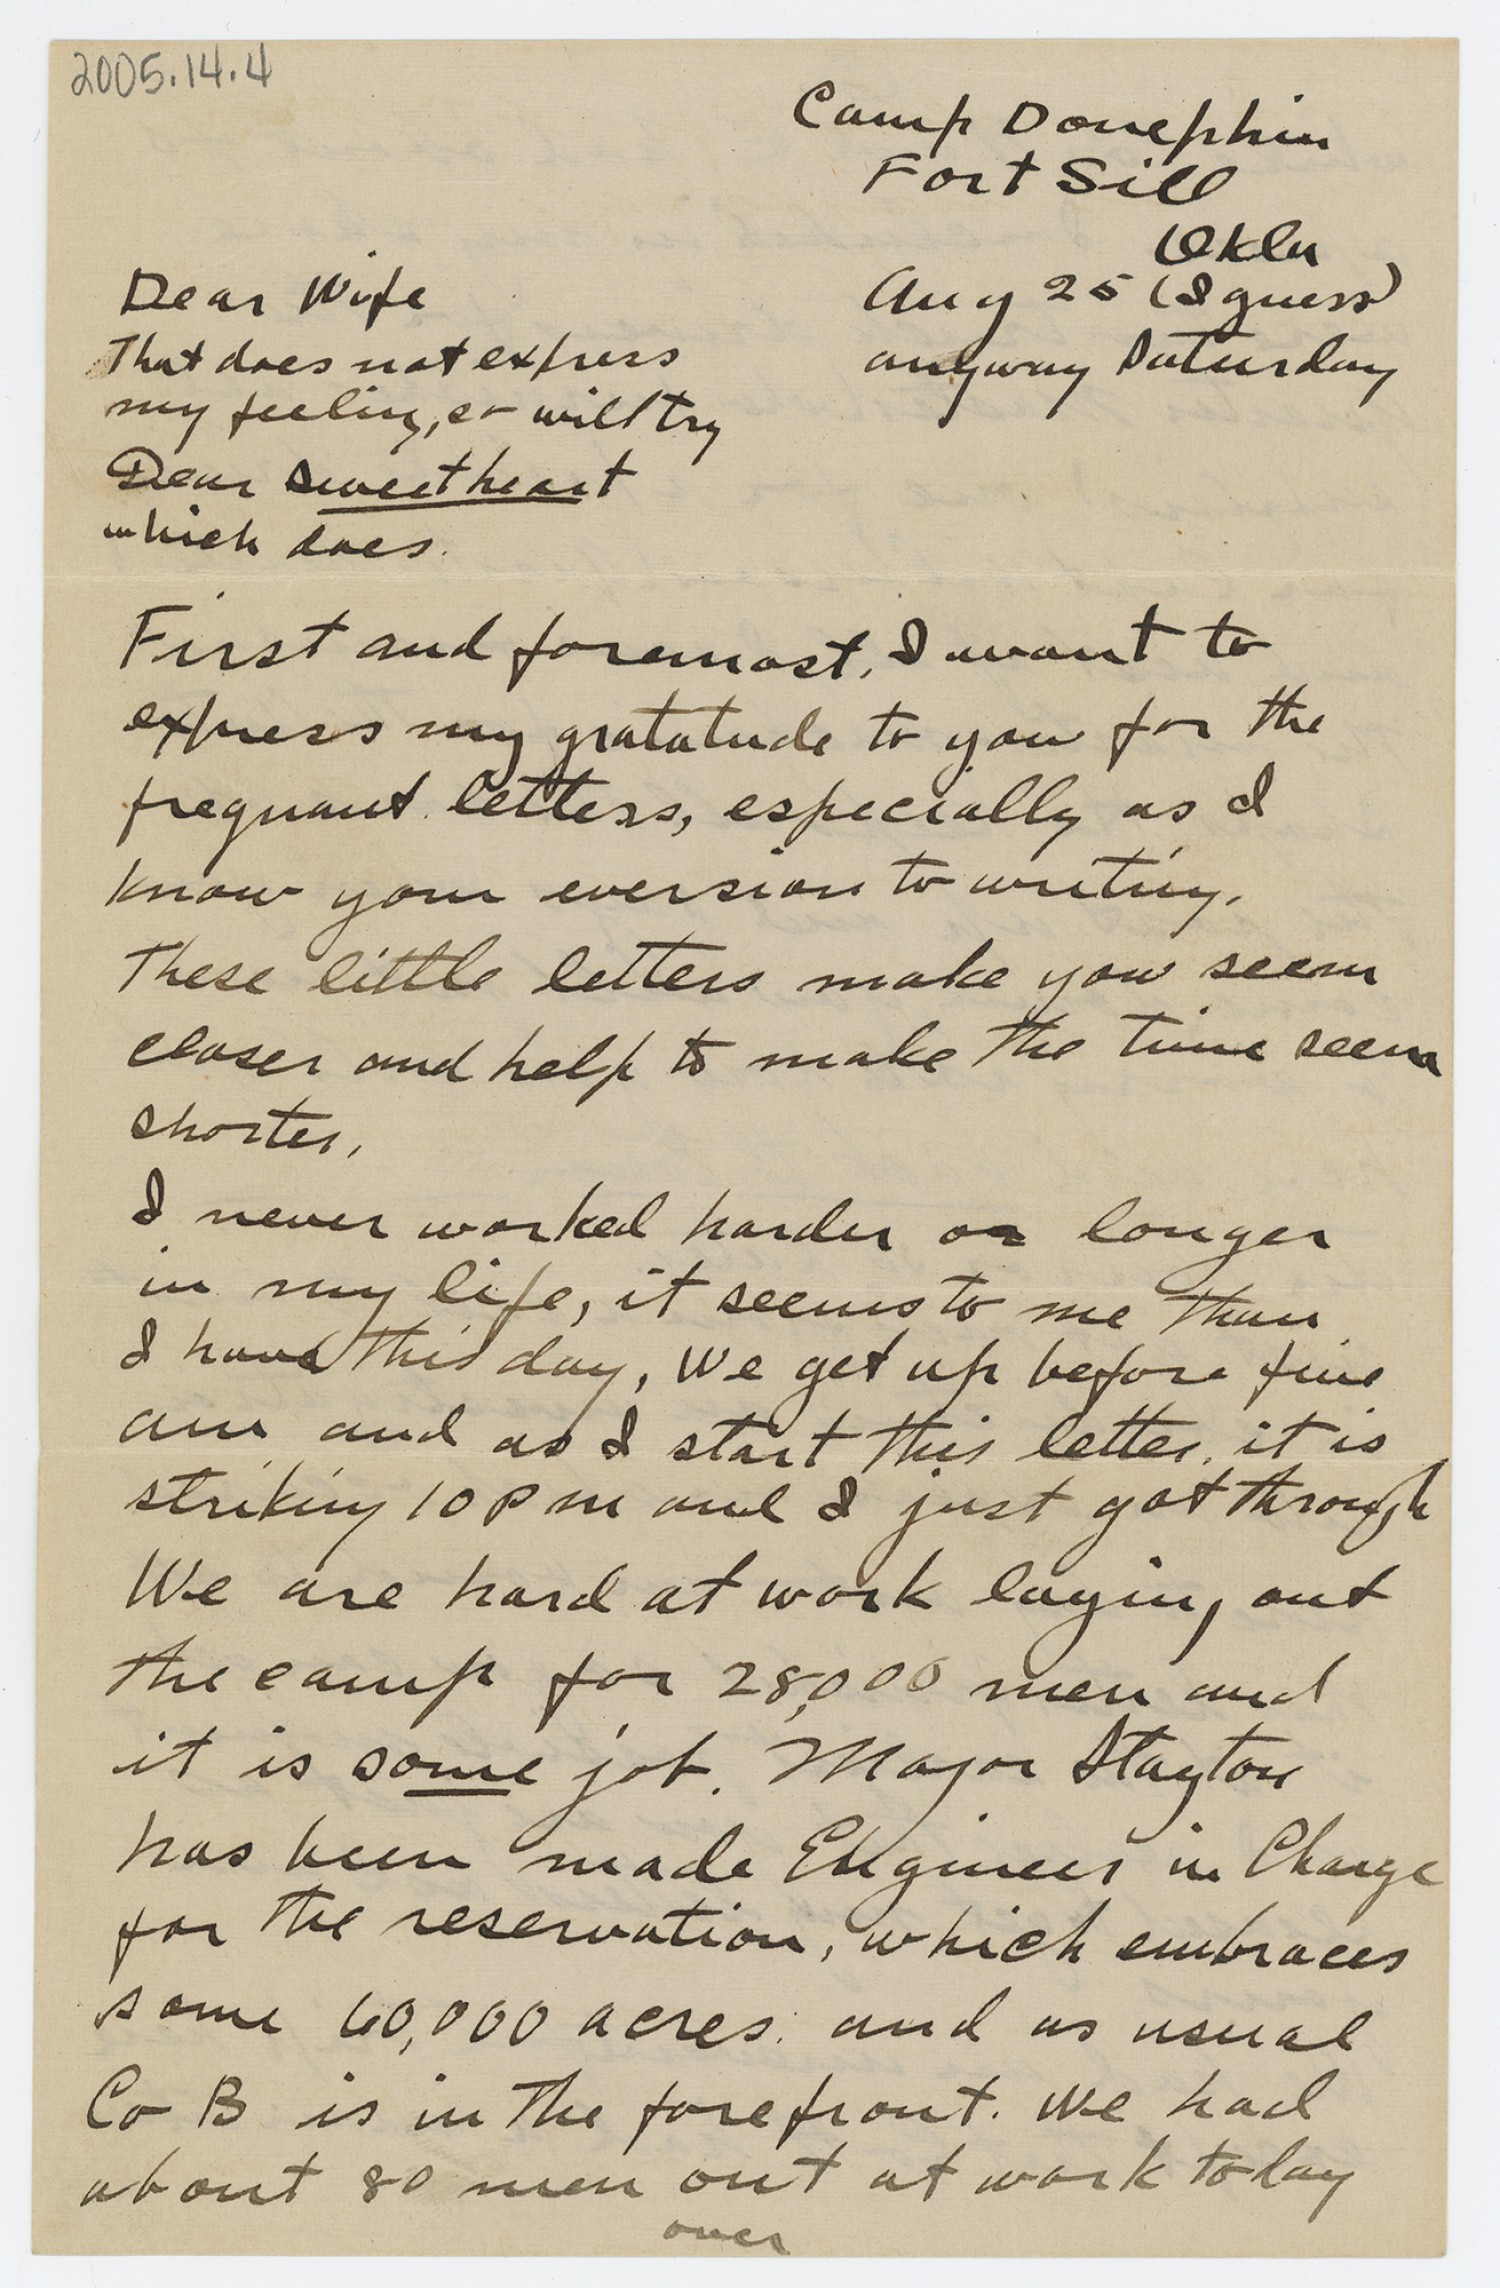 2005.14.4
Camp Donephin
Fort Sill
Okla
Aug 25 (I guess)
anyway Saturday
Dear Wife
That does not express
my feeling, so will try
Dear Sweetheart
which does.
First and foremost, I want to
express my gratatude to you for the
frequant letters, especially as I
know your eversion to writing.
These little letters make you seem
closer and help to make the time seem
shorter,
I never worked harder or longer
in my life, it seems to me than
I have this day, We get up before five
am and as I start this letter, it is
striking 10 PM and I just got through
We are hard at work laying out
the camp for 28,000 men and
it is some job. Major Stayton
has been made Engineer in Charge
for the reservation, which embraces
some 60,000 acres. and as usual
Co B is in the forefront. We had
about 80 men out at work today
over